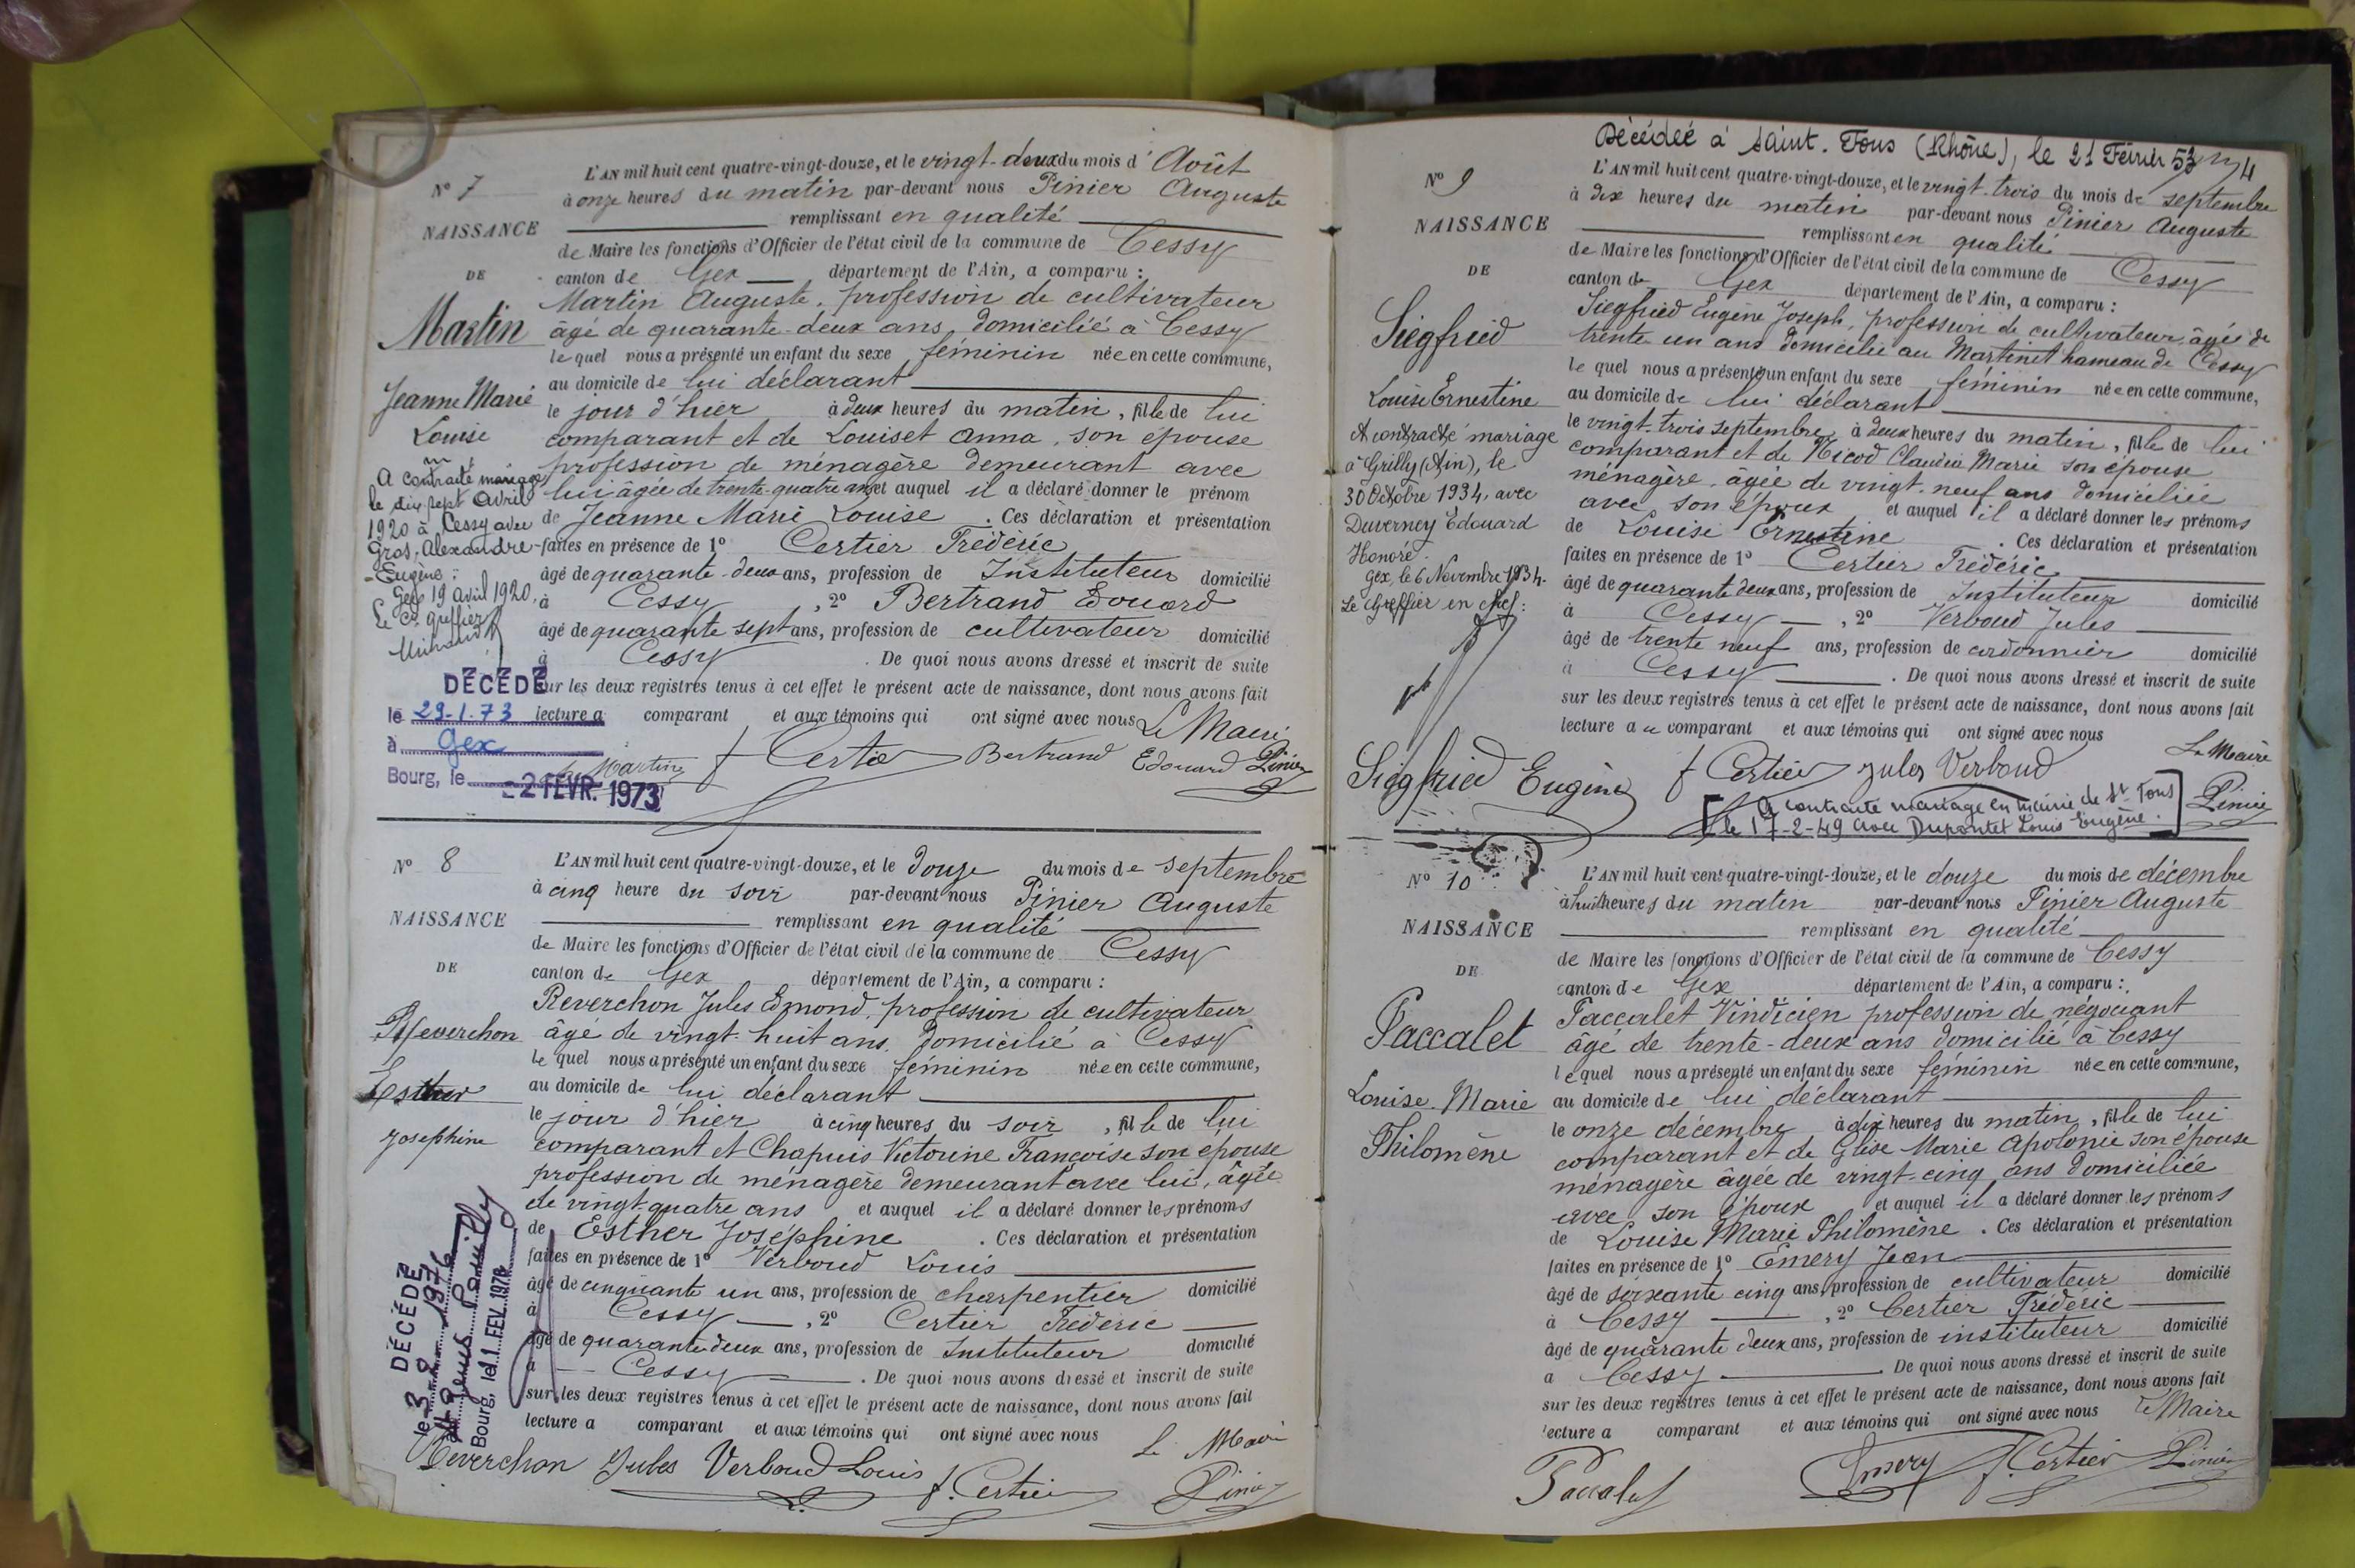 N° 7
NAISSANCE
DE
Martin
Jeanne Marie
Louise
A contracté mariage
le dix sept avril
1920 à Cessy avec
Gros, Alexandre
-Eugène :
Gex 19 avril 1920.
Le Cis greffier
DÉCÉDÉ
le 29-1.73
à Gex
Bourg, le -2 FEVR. 1973
L'AN mil huit cent quatre-vingt-douze, et le vingt-deux du mois d'Août
à onze heures du matin par-devant nous Pinier Auguste
remplissant en qualité
de Maire les fonctions d'Officier de l'état civil de la commune de Cessy
canton de Gex département de l'Ain, a comparu :
Martin Auguste, profession de cultivateur
âgé de quarante-deux ans, domicilié à Cessy
lequel nous a présenté un enfant du sexe féminin née en cette commune,
au domicile de lui déclarant
le jour d'hier à deux heures du matin, fille de lui
comparant et de Louiset Anna, son épouse
profession de ménagère demeurant avec
lui âgée de trente-quatre ans et auquel il a déclaré donner le prénom
de Jeanne Marie Louise. Ces déclaration et présentation
faites en présence de 1° Certier Fréderic
âgé de quarante-deux ans, profession de Instituteur domicilié
à Cessy, 2° Bertrand Edouard
âgé de quarante sept ans, profession de cultivateur domicilié
à Cessy. De quoi nous avons dressé et inscrit de suite
sur les deux registres tenus à cet effet le présent acte de naissance, dont nous avons fait
lecture a comparant et aux témoins qui ont signé avec nous Le Maire
Martin f Certier Bertrand Edouard Pinier
N° 8
NAISSANCE
DE
Reverchon
Esther
Josephine
DÉCÉDÉ
le 3 2 1976
à St-Genis Pouilly
Bourg, le 11 FEV. 1976
L'AN mil huit cent quatre-vingt-douze, et le douze du mois de septembre
à cinq heure du soir par-devant nous Pinier Auguste
remplissant en qualité
de Maire les fonctions d'Officier de l'état civil de la commune de Cessy
canton de Gex département de l'Ain, a comparu :
Reverchon Jules Edmond, profession de cultivateur
âgé de vingt-huit ans, domicilié à Cessy
lequel nous a présenté un enfant du sexe féminin née en cette commune,
au domicile de lui déclarant
le jour d'hier à cinq heures du soir, fille de lui
comparant et Chapuis Victorine Françoise son épouse
profession de ménagère demeurant avec lui, âgée
de vingt-quatre ans et auquel il a déclaré donner les prénoms
de Esther Joséphine. Ces déclaration et présentation
faites en présence de 1° Verboud Louis
âgé de cinquante un ans, profession de charpentier domicilié
à Cessy, 2° Certier Fréderic
âgé de quarante deux ans, profession de Instituteur domicilié
à Cessy. De quoi nous avons dressé et inscrit de suite
sur les deux registres tenus à cet effet le présent acte de naissance, dont nous avons fait
lecture a comparant et aux témoins qui ont signé avec nous
Le Maire
Reverchon Jules Verboud Louis f. Certier Pinier
Décédée à Saint-Fons (Rhône), le 21 Février 53
N° 9
NAISSANCE
DE
Siegfried
Louise Ernestine
A contracté mariage
à Grilly (Ain), le
30 Octobre 1934, avec
Duverney Edouard
Honoré.
Gex, le 6 Novembre 1934.
Le Greffier en chef :
L'AN mil huit cent quatre-vingt-douze, et le vingt-trois du mois de septembre
à dix heures du matin par-devant nous Pinier Auguste
remplissant en qualité
de Maire les fonctions d'Officier de l'état civil de la commune de Cessy
canton de Gex département de l'Ain, a comparu :
Siegfried Eugène Joseph, profession de cultivateur, âgée de
trente un ans domicilié au Martinet hameau de Cessy
lequel nous a présenté un enfant du sexe féminin née en cette commune,
au domicile de lui déclarant
le vingt-trois septembre à deux heures du matin, fille de lui
comparant et de Nicod Claudia Marie son épouse
ménagère, âgée de vingt-neuf ans domiciliée
avec son époux et auquel il a déclaré donner les prénoms
de Louise Ernestine. Ces déclaration et présentation
faites en présence de 1° Certier Fréderic
âgé de quarante deux ans, profession de Instituteur domicilié
à Cessy, 2° Verboud Jules
âgé de trente neuf ans, profession de cordonnier domicilié
à Cessy. De quoi nous avons dressé et inscrit de suite
sur les deux registres tenus à cet effet le présent acte de naissance, dont nous avons fait
lecture au comparant et aux témoins qui ont signé avec nous
Le Maire
Siegfried Eugène f Certier Jules Verboud Pinier
[A contracté mariage en mairie de St Fons
le 17-2-49 avec Dupontet Louis Eugène.]
N° 10
NAISSANCE
DE
Paccalet
Louise Marie
Philomène
L'AN mil huit cent quatre-vingt-douze, et le douze du mois de décembre
à huit heures du matin par-devant nous Pinier Auguste
remplissant en qualité
de Maire les fonctions d'Officier de l'état civil de la commune de Cessy
canton de Gex département de l'Ain, a comparu :
Paccalet Vindicien profession de négociant
âgé de trente-deux ans domicilié à Cessy
lequel nous a présenté un enfant du sexe féminin née en cette commune,
au domicile de lui déclarant
le onze décembre à dix heures du matin, fille de lui
comparant et de Glise Marie Apolonie son épouse
ménagère âgée de vingt-cinq ans domiciliée
avec son époux et auquel il a déclaré donner les prénoms
de Louise Marie Philomène. Ces déclaration et présentation
faites en présence de 1° Emery Jean
âgé de soixante cinq ans, profession de cultivateur domicilié
à Cessy, 2° Certier Fréderic
âgé de quarante deux ans, profession de instituteur domicilié
à Cessy. De quoi nous avons dressé et inscrit de suite
sur les deux registres tenus à cet effet le présent acte de naissance, dont nous avons fait
lecture a comparant et aux témoins qui ont signé avec nous Le Maire
Paccalet Emery f. Certier Pinier